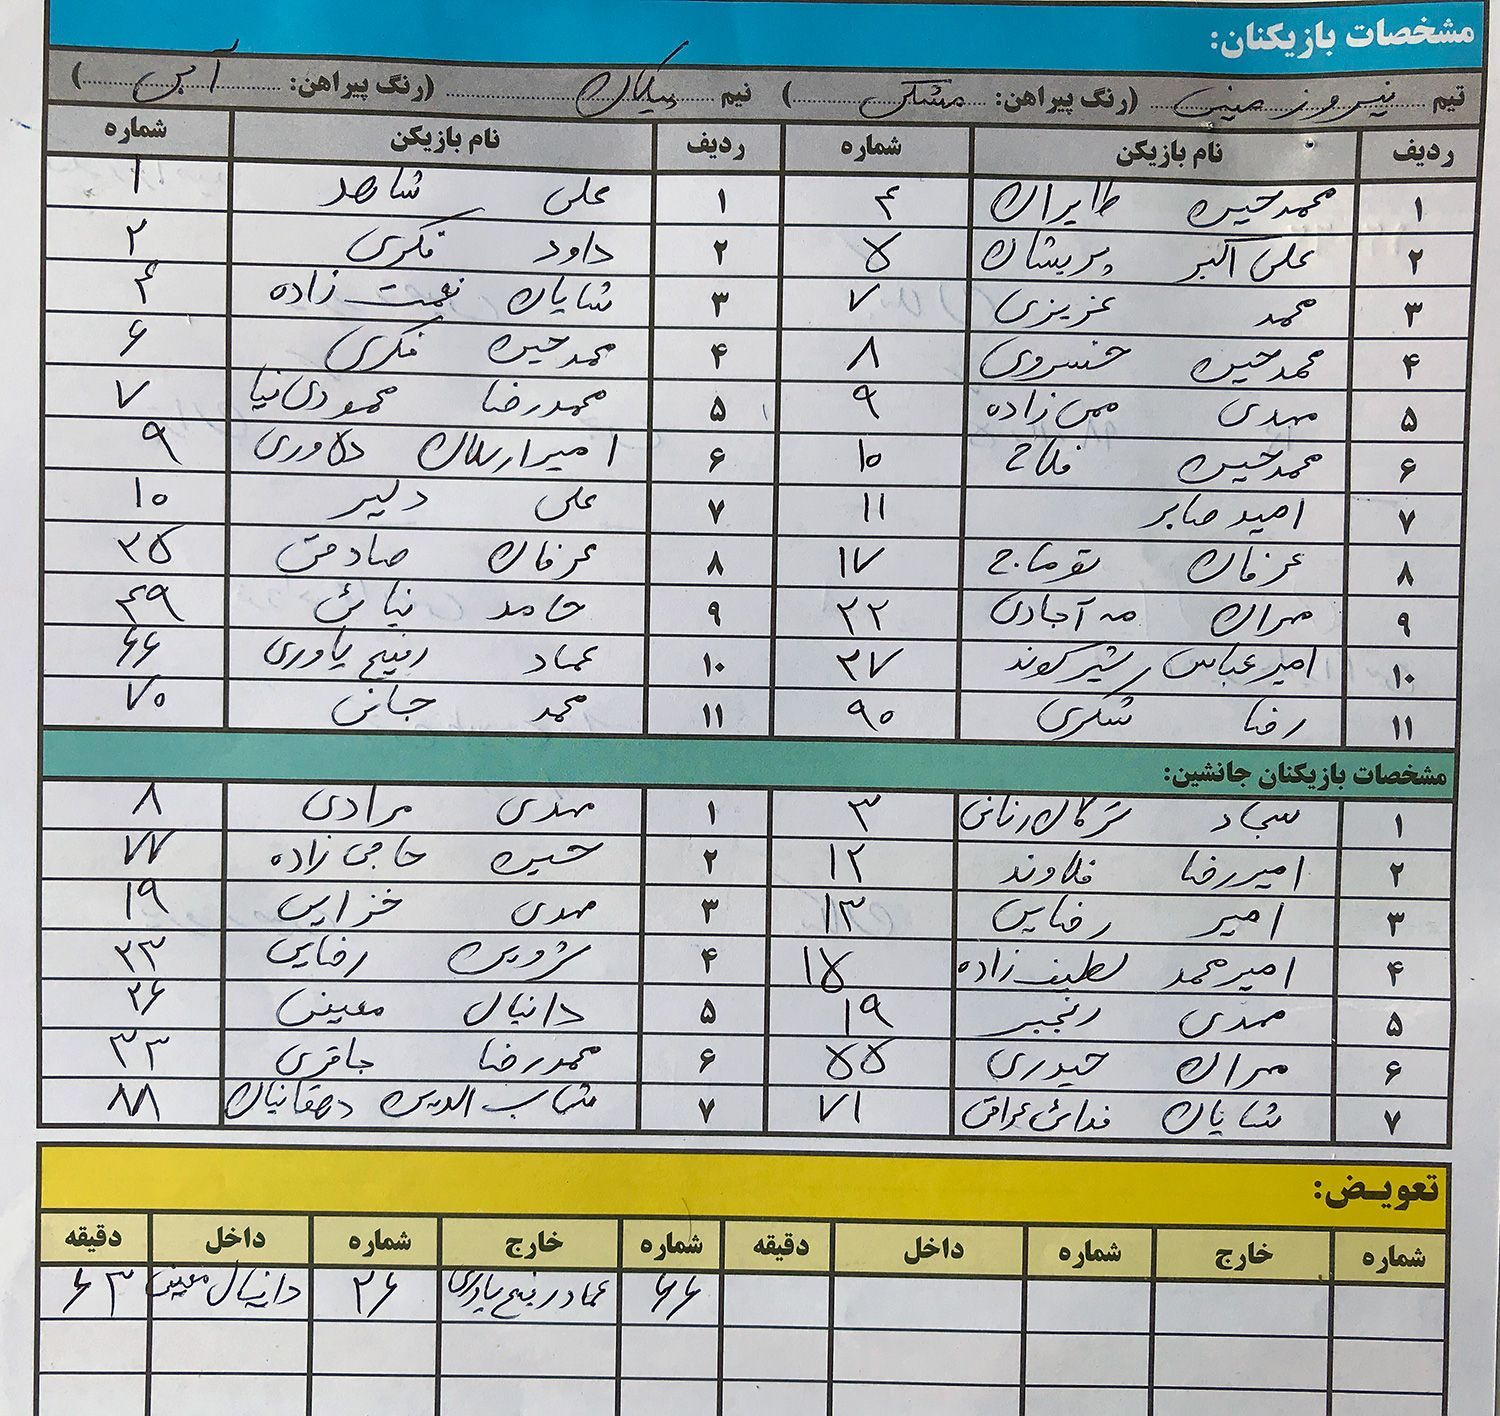 مشخصات بازیکنان:
تیم نیروزمینی (رنگ پیراهن: مشکی) تیم پیکان (رنگ پیراهن: آبی)
ردیف نام بازیکن شماره ردیف نام بازیکن شماره
۱ محمدحسین طایران ۴ ۱ علی شاهد ۱
۲ علی اکبر پریشان ۵ ۲ داود فکری ۲
۳ محمد عزیزی ۷ ۳ شایان نعمت زاده ۴
۴ محمدحسین خسروی ۸ ۴ محمدحسین فکری ۶
۵ مهدی ممی زاده ۹ ۵ محمدرضا محمودی نیا ۷
۶ محمدحسین فلاح ۱۰ ۶ امیرارسلان دلاوری ۹
۷ امید صابر ۱۱ ۷ علی دلیر ۱۰
۸ عرفان توماج ۱۷ ۸ عرفان صادقی ۲۵
۹ مهران مه آبادی ۲۲ ۹ حامد نیائی ۴۹
۱۰ امیرعباس شیرکوند ۲۷ ۱۰ عماد ربیع یاوری ۶۶
۱۱ رضا شکری ۹۰ ۱۱ محمد جانی ۷۰
مشخصات بازیکنان جانشین:
۱ سجاد ترکان رنانی ۳ ۱ مهدی مرادی ۸
۲ امیررضا فلاوند ۱۲ ۲ حسین حاجی زاده ۷۷
۳ امیر رضایی ۱۳ ۳ مهدی خزایی ۱۹
۴ امیرمحمد لطیف زاده ۱۵ ۴ شروین رضایی ۲۳
۵ مهدی رنجبر ۱۹ ۵ دانیال معینی ۲۶
۶ مهران حیدری ۵۵ ۶ محمدرضا باقری ۳۳
۷ شایان فدائی عراقی ۷۱ ۷ شهاب الدین دهقانیان ۸۸
تعویـض:
شماره خارج شماره داخل دقیقه شماره خارج شماره داخل دقیقه
۶۶ عماد ربیع یاوری ۲۶ دانیال معینی ۶۳